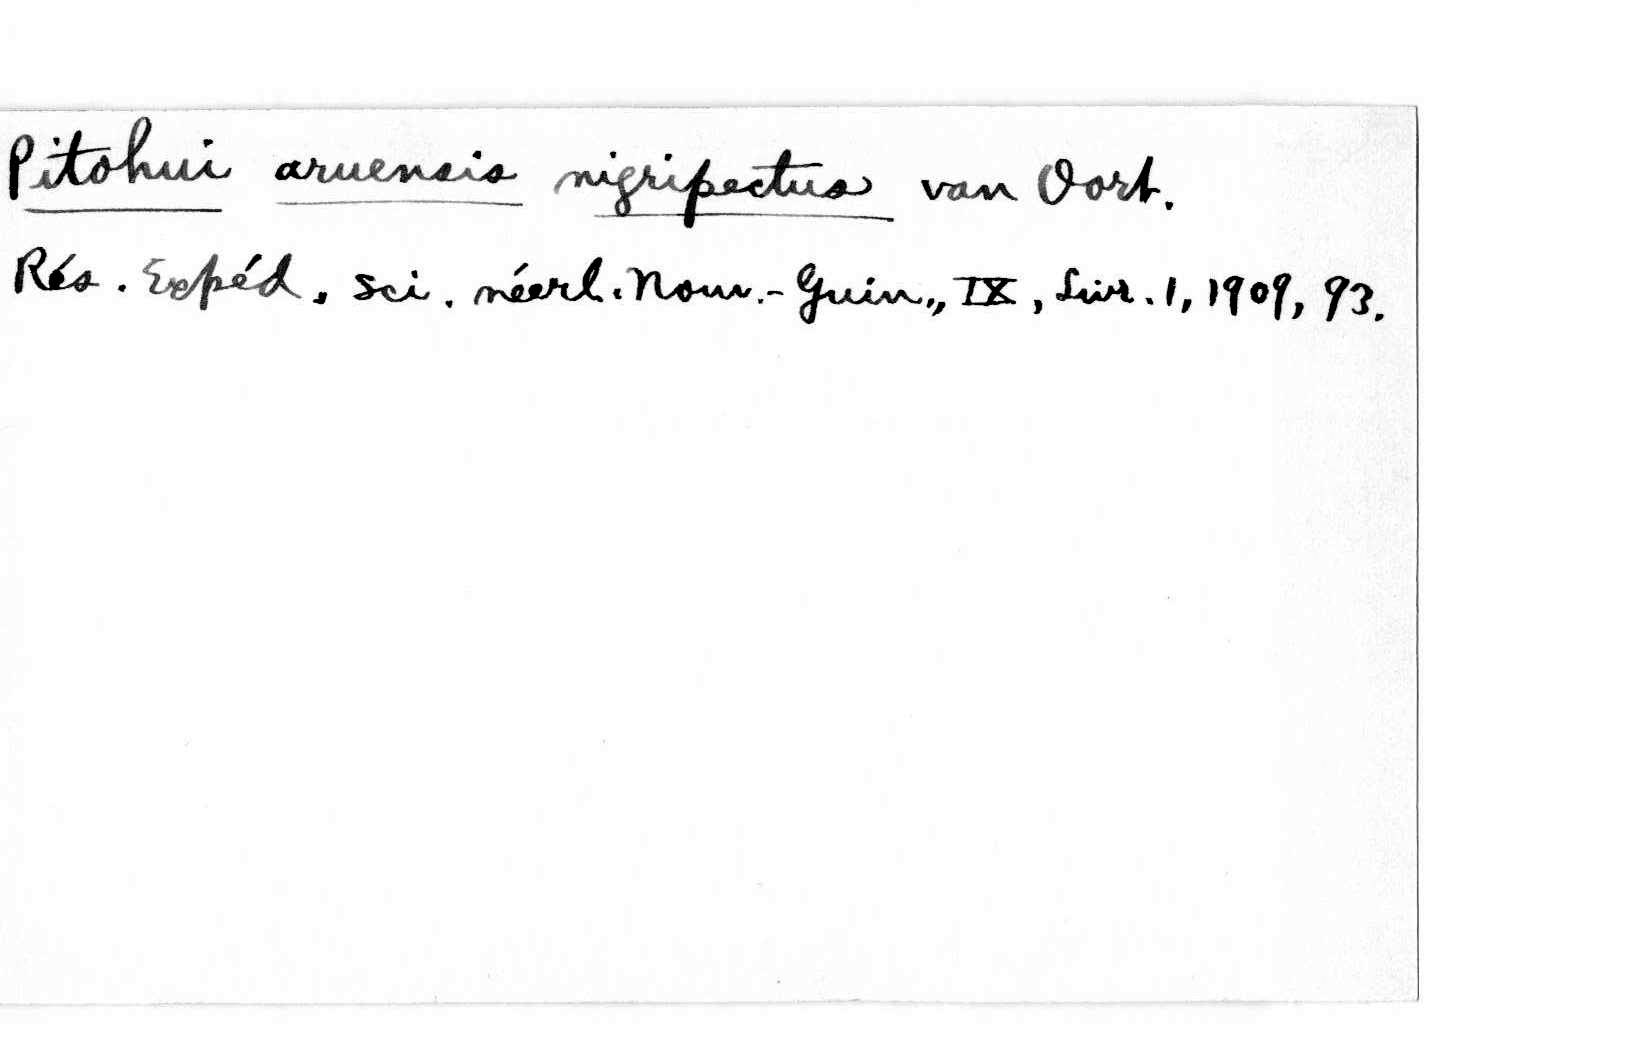 Pitohui aruensis nigripectus van Oort.
Rés. Expéd. sci. néerl. Nouv.-Guin., IX, Livr. 1, 1909, 93.